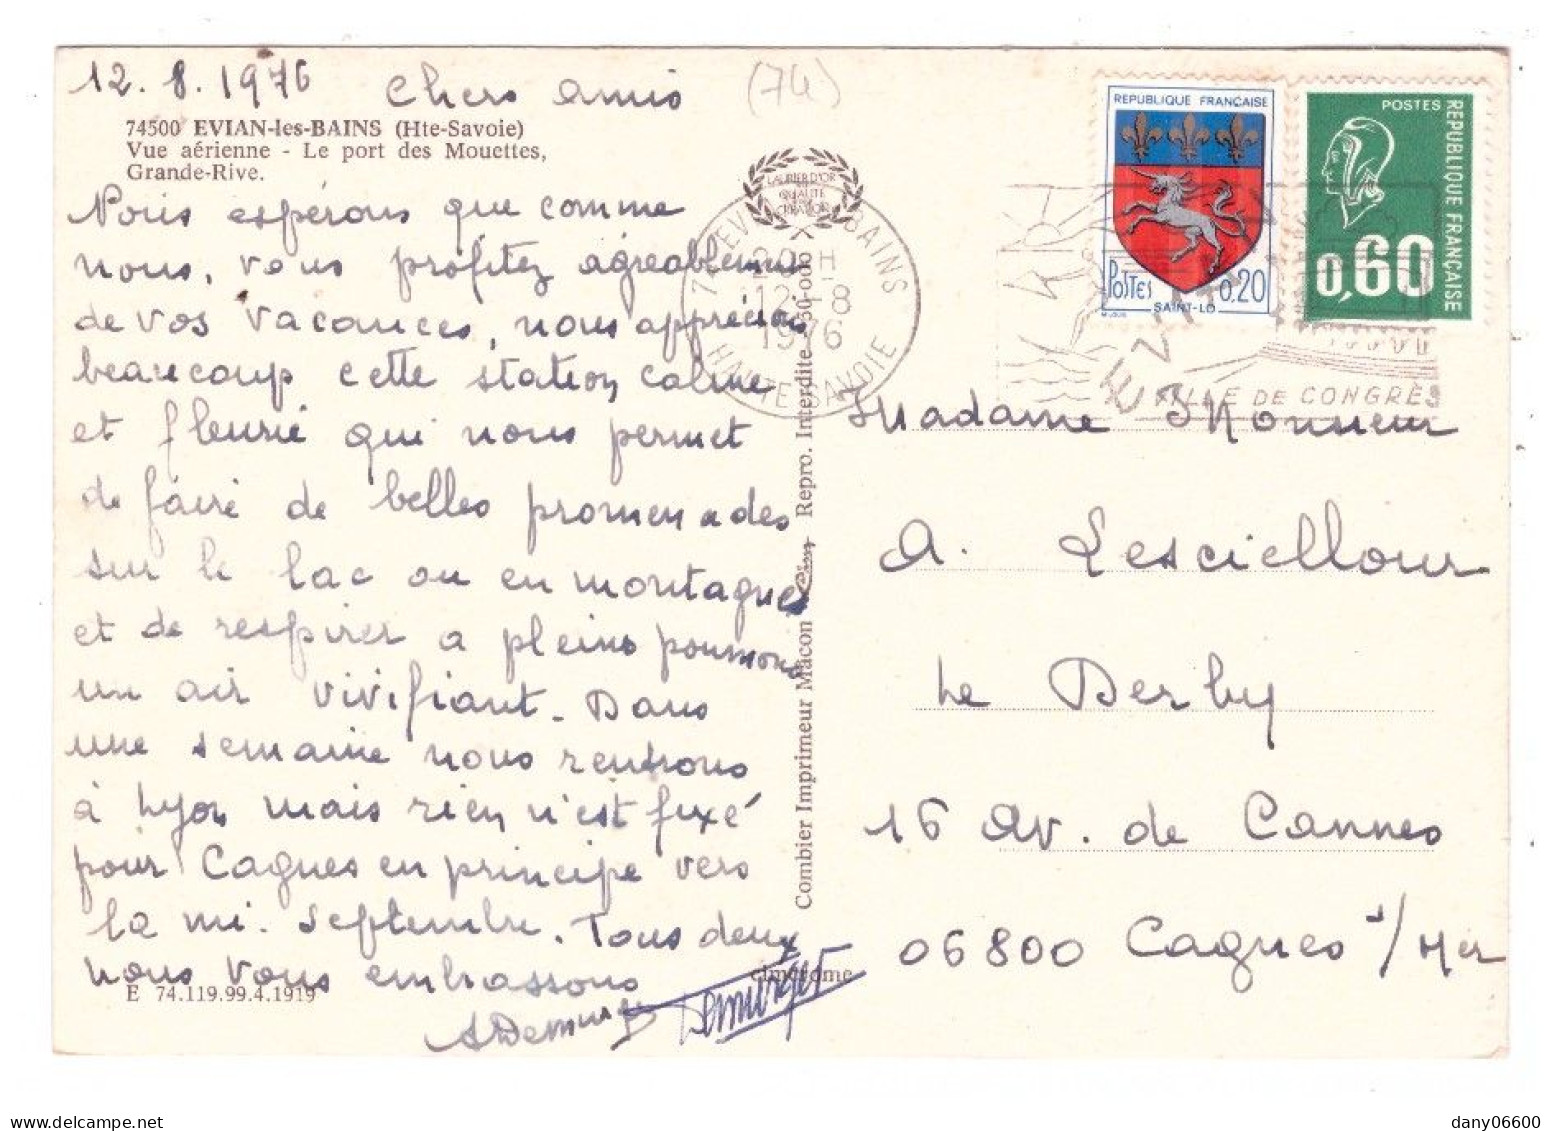 12.8.1976 Chers amis (74)
74500 EVIAN-les-BAINS (Hte-Savoie)
Vue aérienne - Le port des Mouettes,
Grande-Rive.
Nous espérons que comme
nous, vous profitez agréablement
de vos vacances, nous apprécions
beaucoup cette station calme
et fleurie qui nous permet
de faire de belles promenades
sur le lac ou en montagnes
et de respirer a pleins poumons
un air vivifiant. Dans
une semaine nous rentrons
à Lyon mais rien n'est fixé
pour Cagnes en principe vers
la mi. Septembre. Tous deux
nous vous embrassons
E 74.119.99.4.1919
cimcrome
Combier Imprimeur Mâcon Cim Repro. Interdite
LAURIER D'OR
QUALITÉ
74 EVIAN BAINS
20 H
12-8
1976
HAUTE SAVOIE
REPUBLIQUE FRANÇAISE
POSTES 0,20
SAINT-LO
POSTES
REPUBLIQUE FRANÇAISE
0,60
EVIAN
VILLE DE CONGRÈS
Madame Monsieur
A. Lesciellour
Le Derby
16 Av. de Cannes
06800 Cagnes s/Mer
dany06600